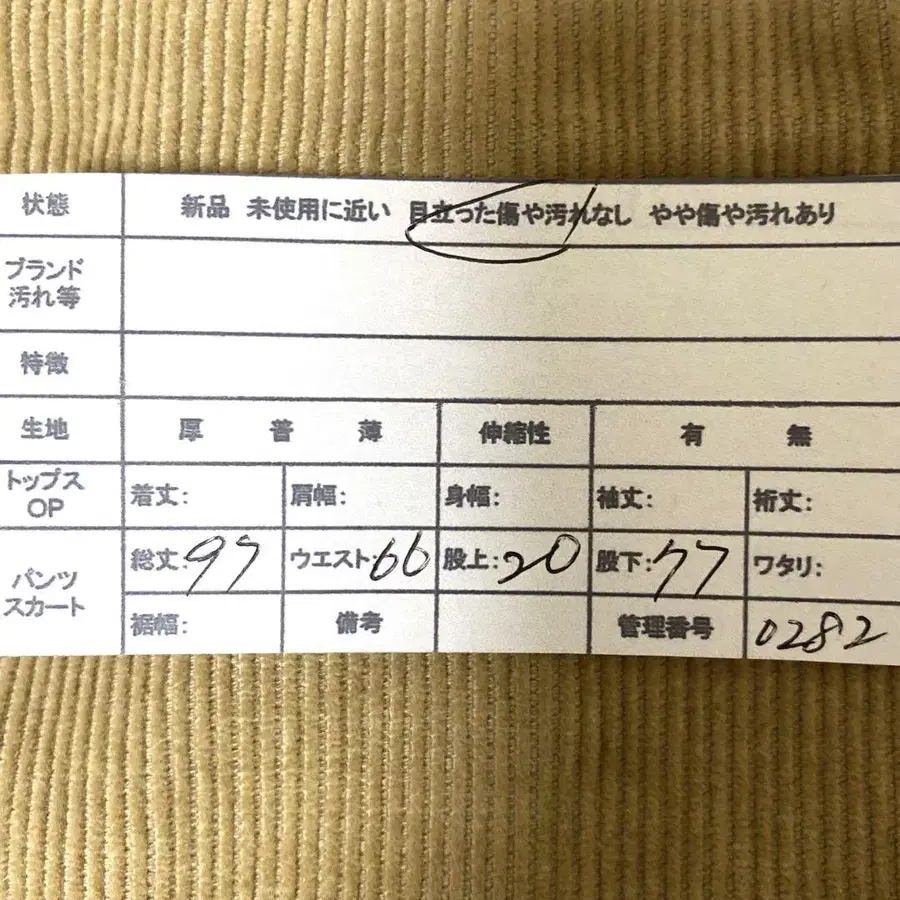 状態 新品 未使用に近い 目立った傷や汚れなし やや傷や汚れあり
ブランド
汚れ等
特徴
生地 厚 普 薄 伸縮性 有 無
トップス
OP
着丈: 肩幅: 身幅: 袖丈: 裄丈:
パンツ
スカート
総丈:97 ウエスト:66 股上:20 股下:77 ワタリ:
裾幅: 備考 管理番号 0282